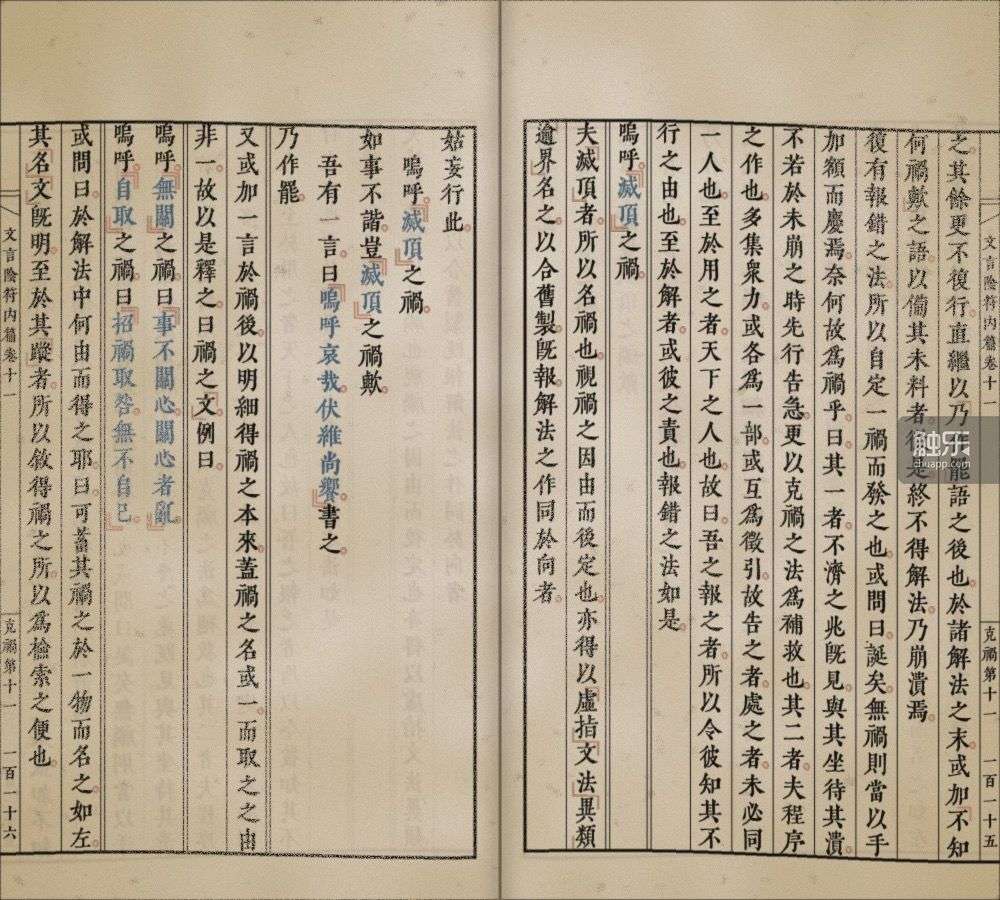 文言陰符內篇卷十一 克禍第十一 一百一十五
之。其餘更不復行。直繼以乃作罷語之後也。於諸解法之末。或加不知
何禍歟之語。以備其未料者。是終不得解法。乃崩潰焉。
復有報錯之法。所以自定一禍而發之也。或問曰。誕矣。無禍則當以手
加額而慶焉。奈何故為禍乎。曰。其一者。不濟之兆既見。與其坐待其潰。
不若於未崩之時。先行告急。更以克禍之法為補救也。其二者。夫程序
之作也。多集衆力。或各為一部。或互為徵引。故告之者。處之者。未必同
一人也。至於用之者。天下之人也。故曰。吾之報之者。所以令彼知其不
行之由也。至於解者。或彼之責也。報錯之法如是。
嗚呼。『滅頂』之禍。
夫『滅頂』者。所以名禍也。視禍之因由而後定也。亦得以『虛指』『文法』『異類』
『逾界』名之。以合舊製。既報。解法之作同於向者。
姑妄行此。
嗚呼。『滅頂』之禍。
如事不諧。豈『滅頂』之禍歟。
吾有一言。曰『嗚呼哀哉。伏維尚饗』。書之。
乃作罷。
又或加一言於禍後。以明細得禍之本來。蓋禍之名或一。而取之之由
非一。故以是釋之。曰禍之文。例曰。
嗚呼。『無關』之禍。曰『事不關心。關心者亂』。
嗚呼。『自取』之禍。曰『招禍取咎。無不自己』。
或問曰。於解法中何由而得之耶。曰。可蓄其禍之於一物而名之。如左。
其名文既明。至於其蹤者。所以敘得禍之所。以為檢索之便也。
文言陰符內篇卷十一 克禍第十一 一百一十六
触乐
chuapp.com